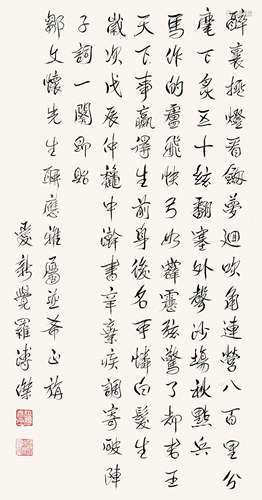 醉裏挑燈看劍夢迴吹角連營八百里分
麾下炙五十絃翻塞外聲沙場秋點兵
馬作的盧飛快弓如霹靂弦驚了卻君王
天下事贏得生前身後名可憐白髮生
歲次戊辰仲龝中澣書辛棄疾調寄破陣
子詞一闋即貽
鄒文懷先生聊應雅屬並希正
愛新覺羅溥傑